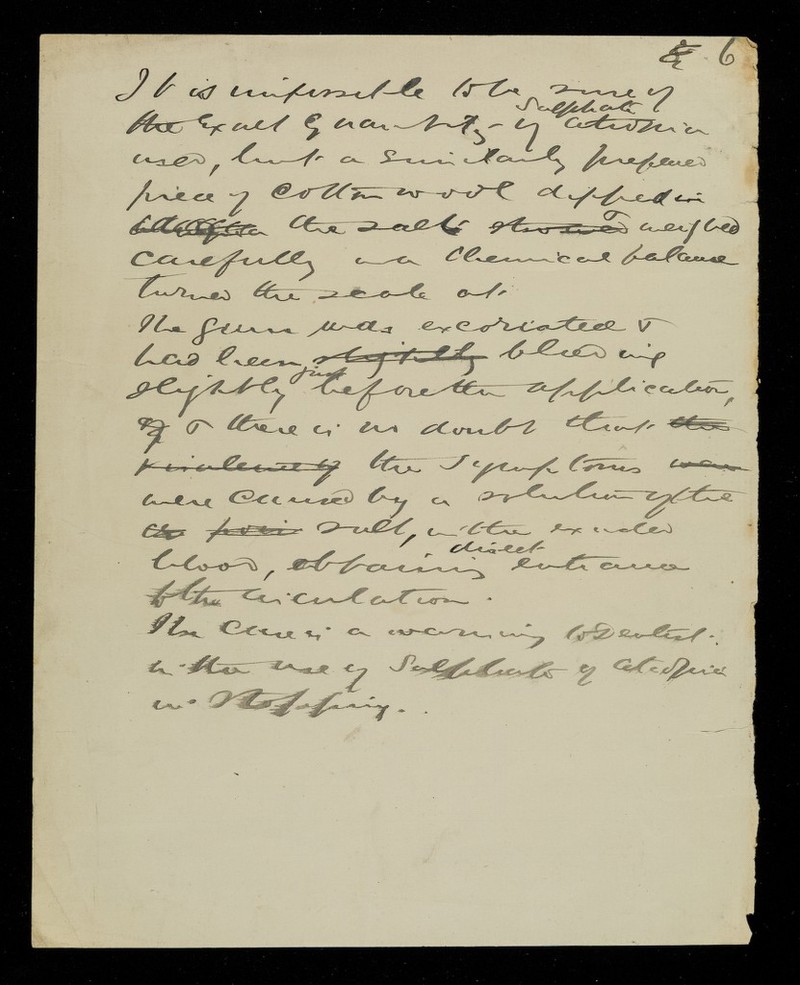 6
It is impossible to be sure of
the exact quantity of Sulphate atropia
used, but a similarly prepared
piece of cotton wool dipped in
the salt showed & weighed
carefully in a chemical balance
turned the scale at
The gum was excoriated &
had been slightly bleeding
slightly just before the application,
of & there is no doubt that the
virulence of the symptoms were
were caused by a solution of the
poi salt, in the exuded
blood, obtaining direct entrance
to the circulation.
The case is a warning to Dentist.
in the use of Sulphate of atropia
in Stopping.